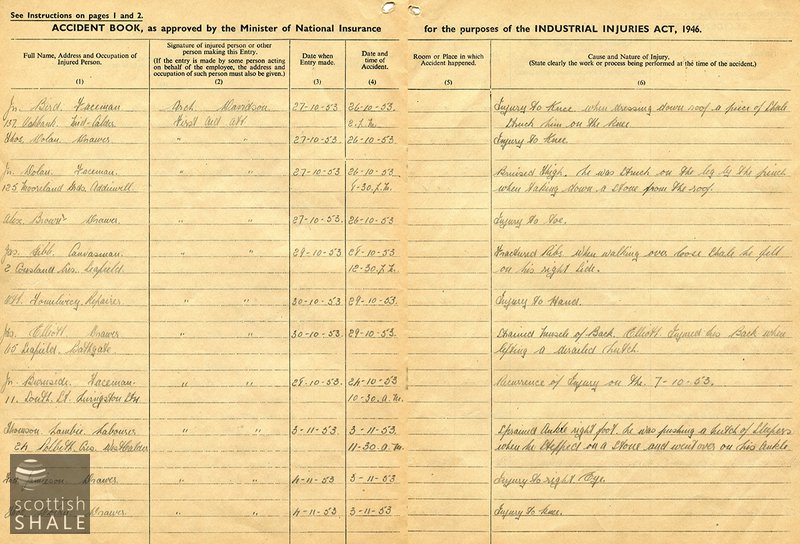 See Instructions on pages 1 and 2.
ACCIDENT BOOK, as approved by the Minister of National Insurance for the purposes of the INDUSTRIAL INJURIES ACT, 1946.
Full Name, Address and Occupation of Injured Person.
(1)
Signature of injured person or other person making this Entry.
(If the entry is made by some person acting on behalf of the employee, the address and occupation of such person must also be given.)
(2)
Date when Entry made.
(3)
Date and time of Accident.
(4)
Room or Place in which Accident happened.
(5)
Cause and Nature of Injury.
(State clearly the work or process being performed at the time of the accident.)
(6)
Jn. Bird. Faceman Arch. Davidson 27-10-53 26-10-53. Injury to Knee when dressing down roof a piece of Shale
137 Oakbank Mid-Calder First Aid Att. Struck him on the knee
Thos. Dolan Drawer " " 27-10-53 26-10-53 Injury to Knee.
Jn. Dolan. Faceman. " " 27-10-53 26-10-53 Bruised thigh. he was struck on the leg by the pinch
125 Mooreland Addiewell 8-30.P.M. when taking down a stone from the roof.
Alex. Brown Drawer. " " 27-10-53 26-10-53. Injury to Toe.
Jas. Gibb. Canvasman. " " 29-10-53 28-10-53 Fractured Ribs when walking over loose Shale he fell
2 Cres. Seafield. 12-30.P.M. on his right side.
Repairer " " 30-10-53 29-10-53. Injury to Hand.
Elliott Drawer " " 30-10-53 29-10-53. Strained muscle of Back. Elliott Injured his Back when
Seafield. Bathgate lifting a derailed hutch.
Jn. Burnside. Faceman. " " 28-10-53 24-10-53 Recurrence of Injury on the 7-10-53.
11. South. St. Livingston Stn. 10-30.a.m.
Thomson Lambie Labourer " " 3-11-53 3-11-53. Sprained Ankle right foot. he was pushing a hutch of Sleepers
24 Polbeth Cres. West Calder 11-30.a.m. when he stepped on a stone and went over on his Ankle
Jamieson Drawer " " 4-11-53 3-11-53 Injury to right Eye.
Drawer " " 4-11-53 3-11-53 Injury to Knee.
scottish
SHALE